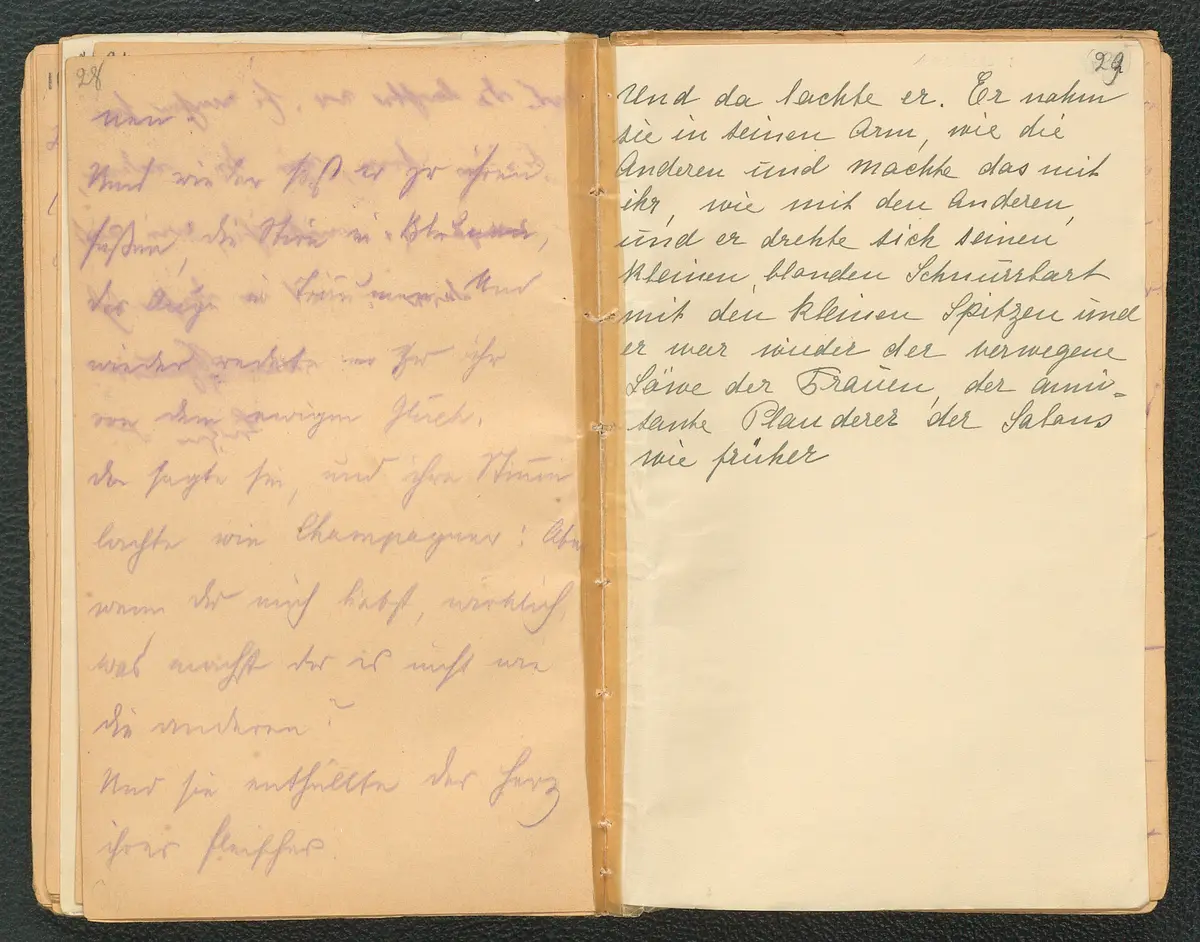 28
nen
Und wieder saß er zu ihren
Füßen, die Stirn in
das Auge in Und
wieder redete er zu ihr
von dem ewigen Glück.
da sagte sie, und ihre Stimme
lachte wie Champagner: Aber
wenn du mich liebst, wirklich,
was machst du es nicht wie
die anderen?
Und sie enthüllte das Herz
ihres Fleisches
29
Und da lachte er. Er nahm
sie in seinen Arm, wie die
Anderen und machte das mit
ihr, wie mit den Anderen,
und er drehte sich seinen
kleinen, blonden Schnurrbart
mit den kleinen Spitzen und
er war wieder der verwegene
Löwe der Frauen, der amü-
sante Plauderer der Salons
wie früher